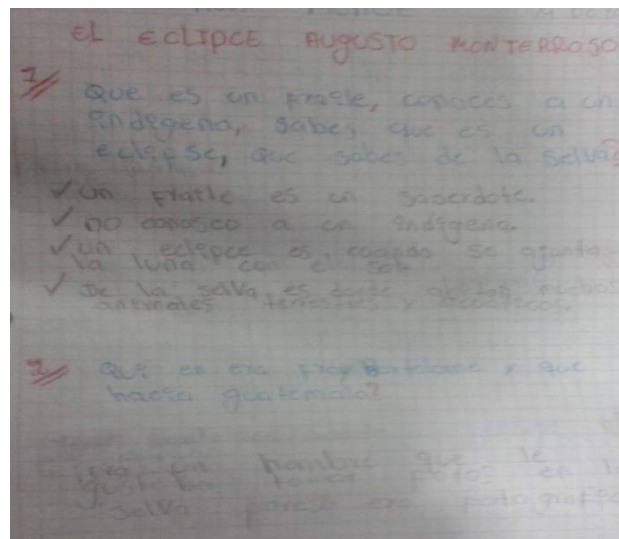 EL ECLIPCE AUGUSTO MONTERROSO
1 Que es un fraile, conoces a un
indegena, sabes que es un
eclipse, que sabes de la selva?
✓ un fraile es un saserdote.
✓ no conosco a un indigena.
✓ un eclipce es, cuando se ajunta
la luna con el sol.
✓ De la selva, es donde
anemales terrestres y
2 que en era fray Bartolome y que
hacia guatemala?
era un hombre que le
gustaba tomar fotos en l
selva